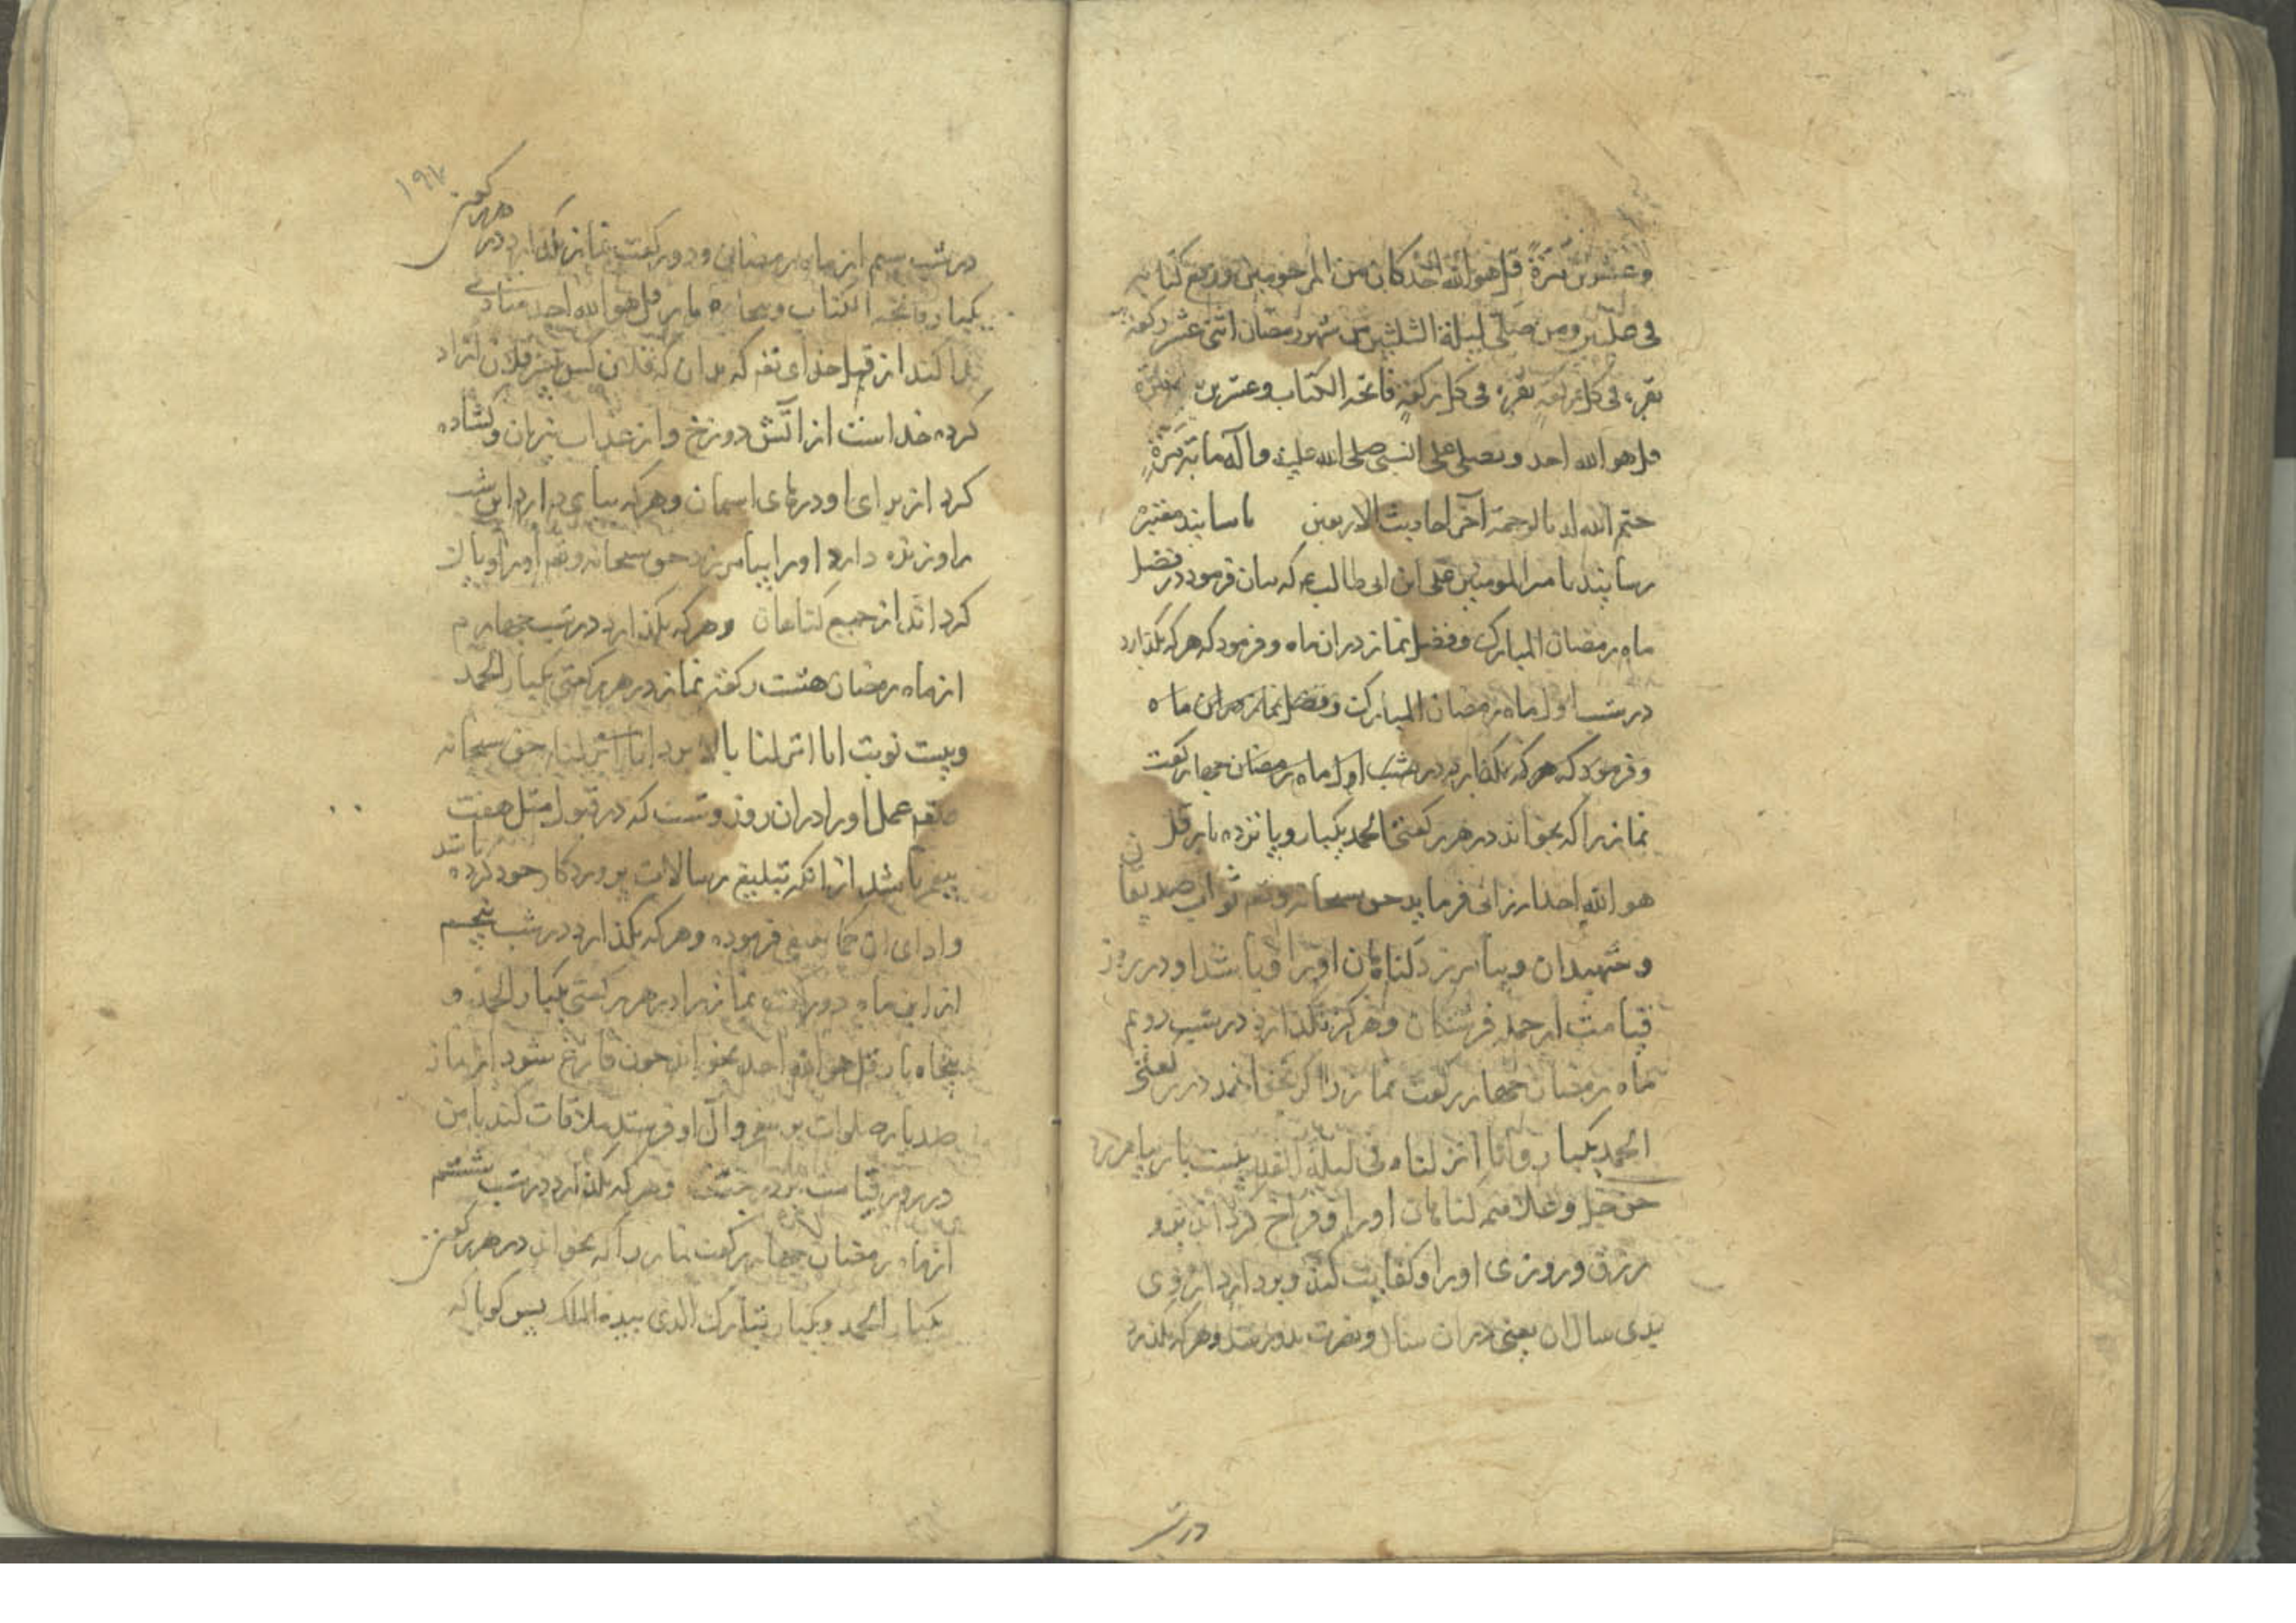 وعشرین مرّة قل هو الله احد کان من المرحومین ورفع کتابه
فی علیین ومن صلّی لیلة الثلثین من شهر رمضان اثنی عشر رکعة
یقرء فی کل رکعة فاتحه الکتاب وعشرین مرّة
قل هو الله احد ویصلی علی النبی صلی الله علیه وآله مائة مرّة
ختم الله له بالرحمة آخر احادیث الاربعین باسانید معتبره
رسانیدند بامیر المومنین علی ابن ابی طالب ع که بیان فرمود در فضل
ماه رمضان المبارک وفضل نماز دران ماه وفرمود که هرکه بگذارد
در شب اول ماه رمضان المبارک وفضل نماز در این ماه
وفرمود که هرکه بگذارد در شب اول ماه رمضان چهار رکعت
نماز را که بخواند در هر رکعتی الحمد یکبار و پانزده بار قل
هو الله احد ارزانی فرماید حق سبحانه وتعم ثواب صدیقان
وشهیدان وبیامرزد گناهان او را وباشد او در روز
قیامت از جمله فرستگان وهرکه بگذارد در شب دویم
ماه رمضان چهار رکعت نماز را که بخواند در هر رکعتی
الحمد یکبار وانا انزلناه فی لیلة القدر بیست بار بیامرزد
حق جل وعلا همه گناهان او را وفراخ گرداند برو
رزق وروزی او را وکفایت کند وبردارد از وی
بدی سال ان یعنی دران سال ونصرت بدو رسد وهرکه بگذارد
در شب
۱۹۷
در شب سیم از ماه رمضان ودو رکعت نماز بگذارد در هر رکعتی
یکبار فاتحه الکتاب وپنجاه بار قل هو الله احد منادی
ندا کند از قبل خدای تعم که بدان که فلان کس پسر فلان ازاد
کرده خداست از اتش دوزخ واز عذاب نیران وگشاده
کرد از برای او درهای اسمان وهرکه بپای دارد این شب
را وزنده دارد او را بیامرزد حق سبحانه وتعم او را وپاک
کرداند از جمیع گناهان وهرکه بگذارد در شب چهارم
از ماه رمضان هشت رکعة نماز در هر رکعتی یکبار الحمد
وبیست نوبت انا انزلنا بالا برد انا انزلنا حق سبحانه
وتعم عمل او را دران روز وشب که در قبول مثل هفت
پیغمبر باشد از انکه تبلیغ رسالات پروردکار خود کرده باشد
وادای ان کما ینبغی فرموده وهرکه بگذارد در شب پنجم
از این ماه دو رکعت نماز را در هر رکعتی یکبار الحمد و
پنجاه بار قل هو الله احد بخواند چون فارغ شود از نماز
صد بار صلوات بر پیغمبر وآل او فرستد ملاقات کند با من
در روز قیامت بر در جنت وهرکه بگذارد در شب ششم
از ماه رمضان چهار رکعت نماز را که بخواند در هر رکعتی
یکبار الحمد ویکبار تبارک الذی بیده الملک پس کویا که